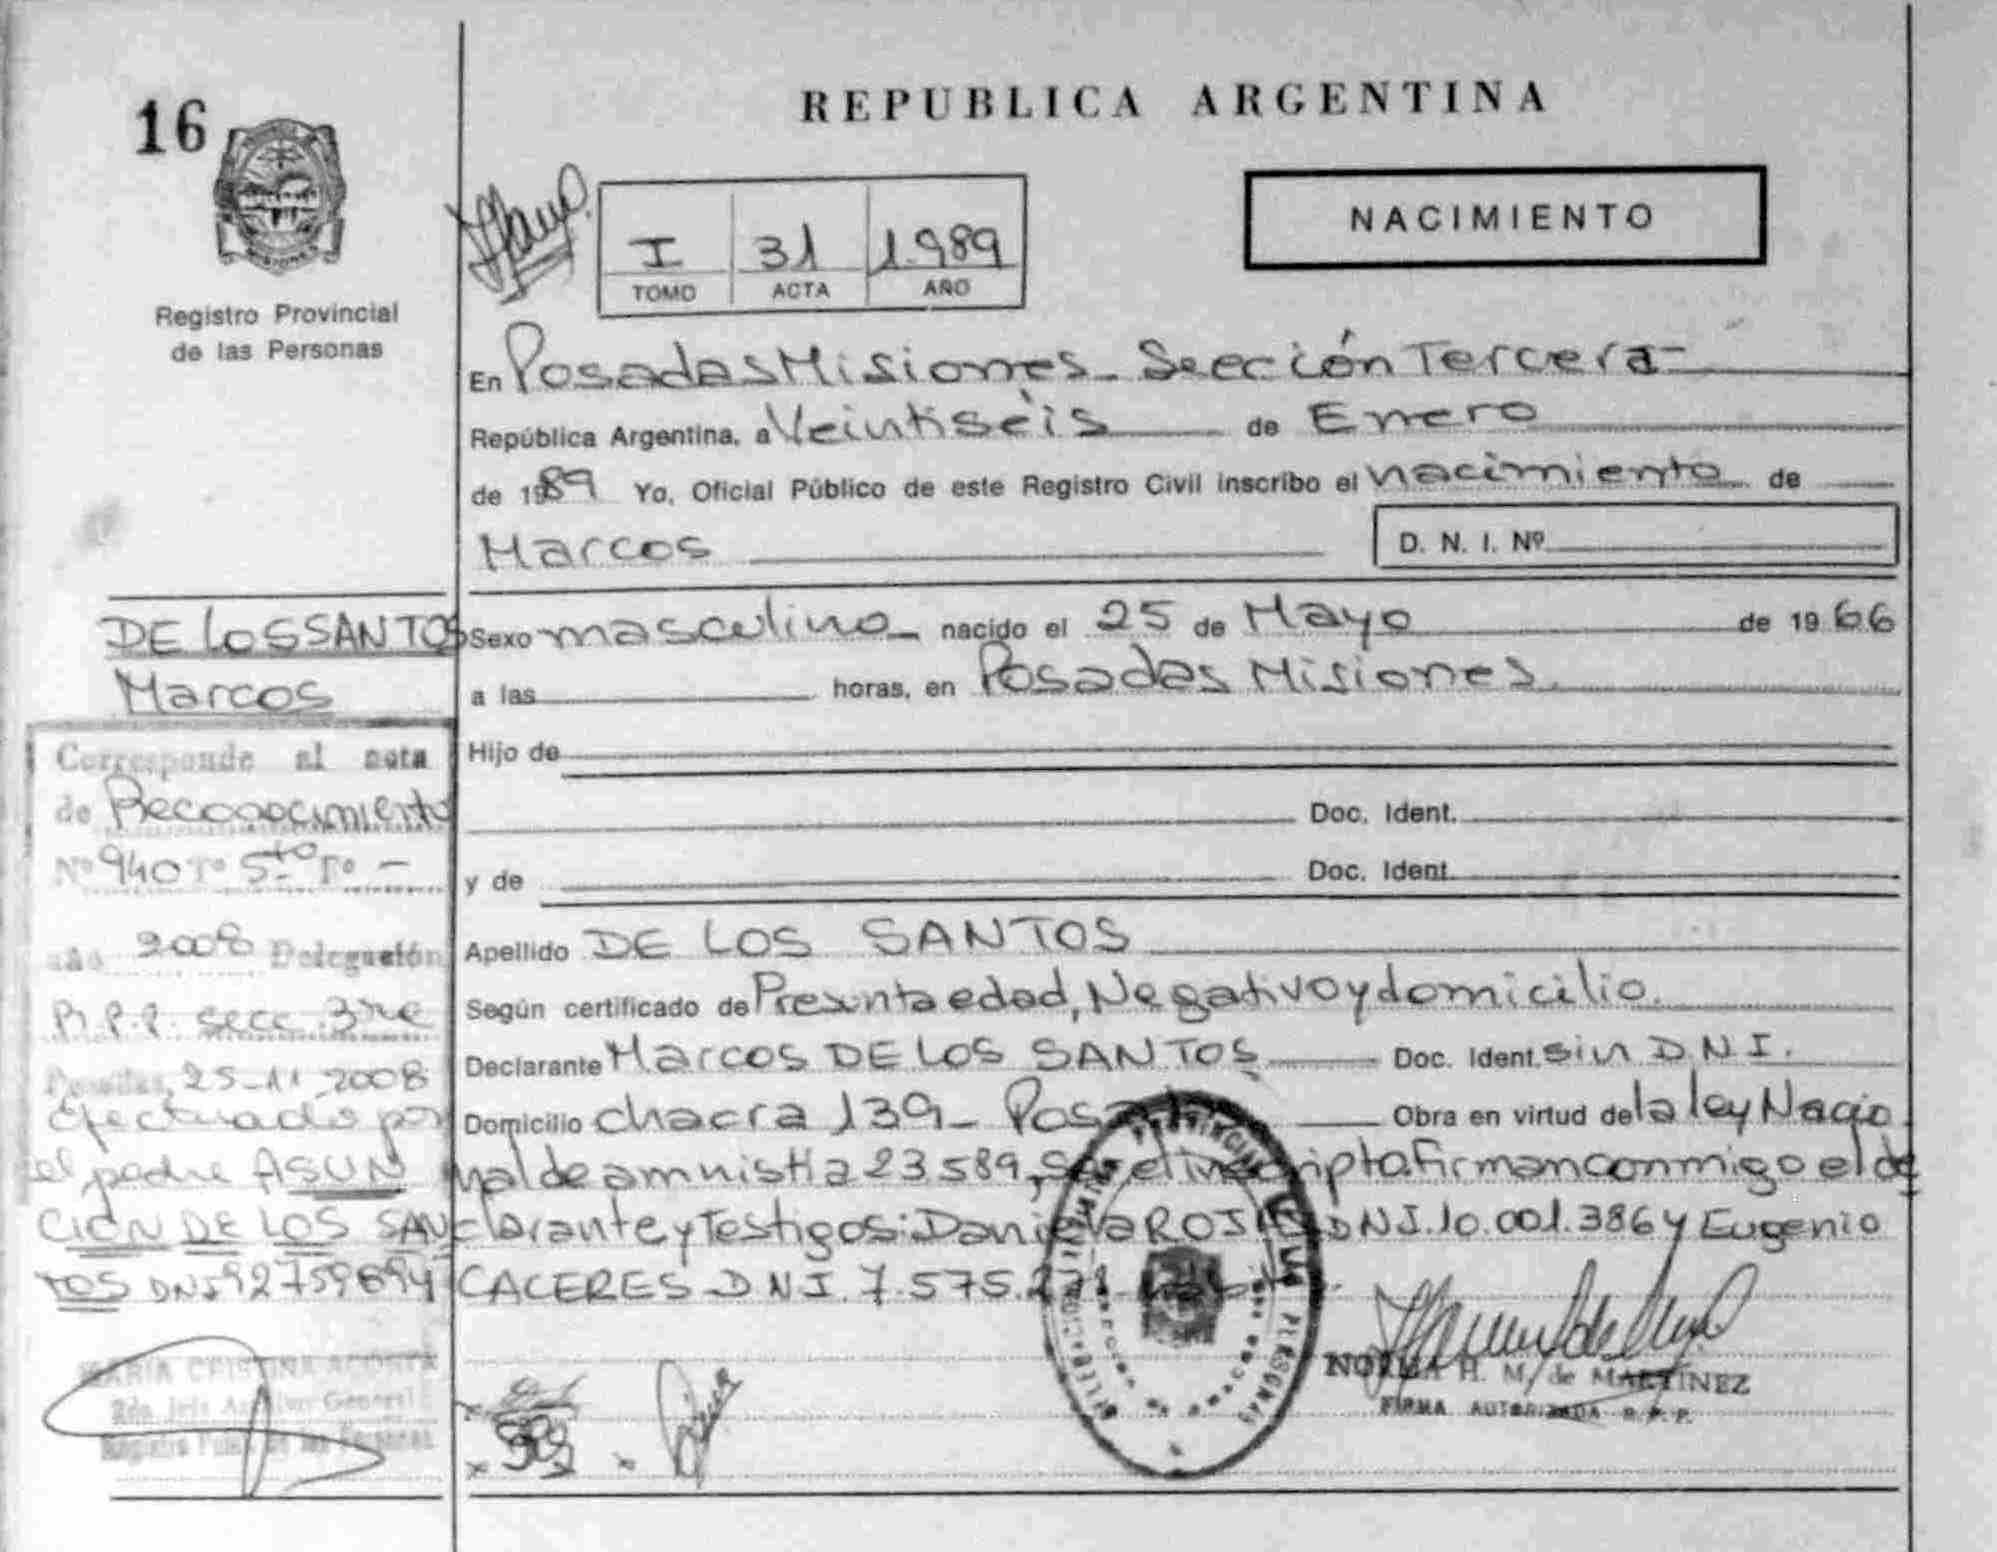 16
REPUBLICA ARGENTINA
NACIMIENTO
I 31 1.989
TOMO ACTA AÑO
Registro Provincial
de las Personas
En Posadas Misiones - Sección Tercera -
República Argentina, a Veintiséis de Enero
de 1989 Yo, Oficial Público de este Registro Civil inscribo el nacimiento de
Marcos
D. N. I. Nº
Sexo masculino nacido el 25 de Mayo de 1966
a las horas, en Posadas Misiones.
Hijo de
Doc. Ident.
y de Doc. Ident.
Apellido DE LOS SANTOS
Según certificado de Presunta edad, Negativo y domicilio.
Declarante Marcos DE LOS SANTOS Doc. Ident. sin D.N.I.
Domicilio chacra 139 - Obra en virtud de la ley Nacio
nal de amnistia 23.589, firman conmigo el de
clarante y Testigos: DNI. 10.001.386 y Eugenio
CACERES D N I. 7.575.
NORMA H. M. de MARTINEZ
FIRMA AUTORIZADA R. P. P.
DE LOS SANTOS
Marcos
Corresponde al acta
de Reconocimiento
Nº 940 Tº 5to Fº -
año 2008 Delegación
R.P.P. secc. 3ra
Posadas, 25-11-2008
Efectuado por
el padre ASUN
CIÓN DE LOS SAN
TOS DNI 92759894
MARIA CRISTINA ACOSTA